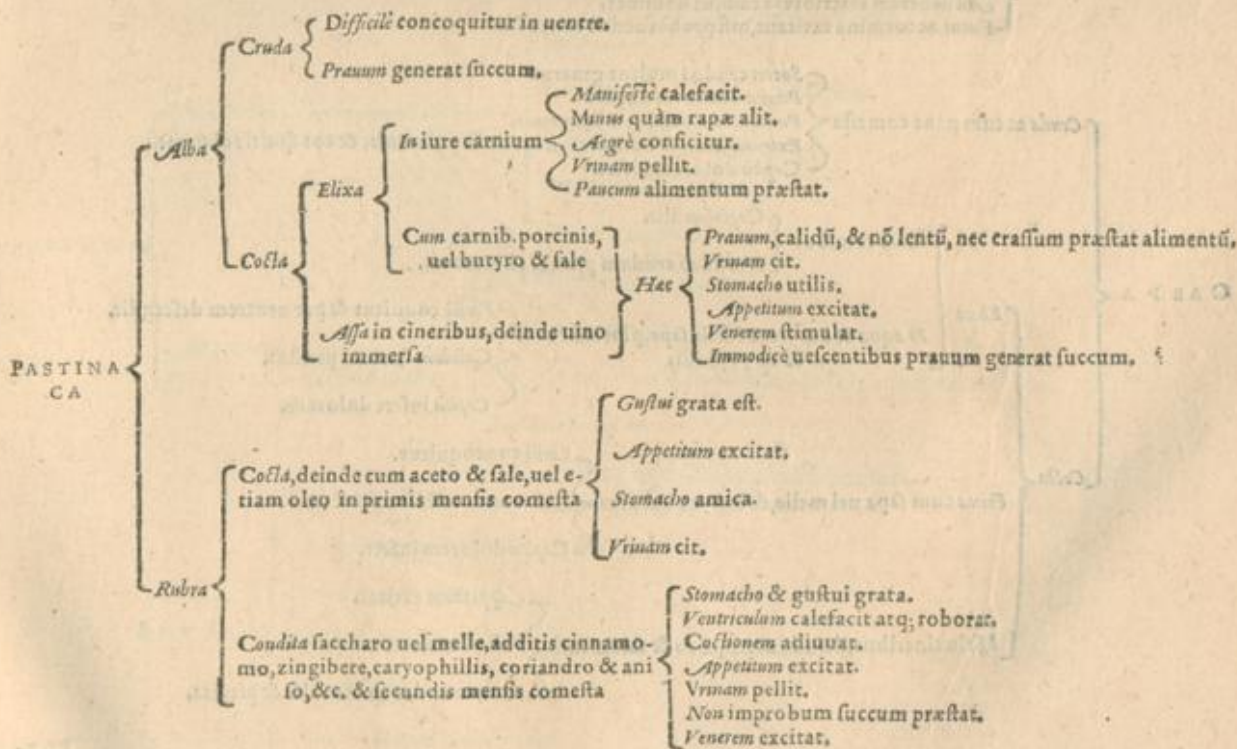 PASTINA
CA
Alba
Cruda
Difficilè concoquitur in uentre.
Prauum generat succum.
Cocta
Elixa
In iure carnium
Manifestè calefacit.
Minus quàm rapæ alit.
Aegrè conficitur.
Vrinam pellit.
Paucum alimentum præstat.
Cum carnib. porcinis,
uel butyro & sale
Assa in cineribus, deinde uino
immersa
Hæc
Prauum, calidũ, & nõ lentũ, nec crassum præstat alimentũ,
Vrinam cit.
Stomacho utilis.
Appetitum excitat.
Venerem stimulat.
Immodicè uescentibus prauum generat succum.
Rubra
Cocta, deinde cum aceto & sale, uel e-
tiam oleo in primis mensis comesta
Gustui grata est.
Appetitum excitat.
Stomacho amica.
Vrinam cit.
Condita saccharo uel melle, additis cinnamo-
mo, zingibere, caryophillis, coriandro & ani
so, &c. & secundis mensis comesta
Stomacho & gustui grata.
Ventriculum calefacit atq; roborat.
Coctionem adiuuat.
Appetitum excitat.
Vrinam pellit.
Non improbum succum præstat.
Venerem excitat.